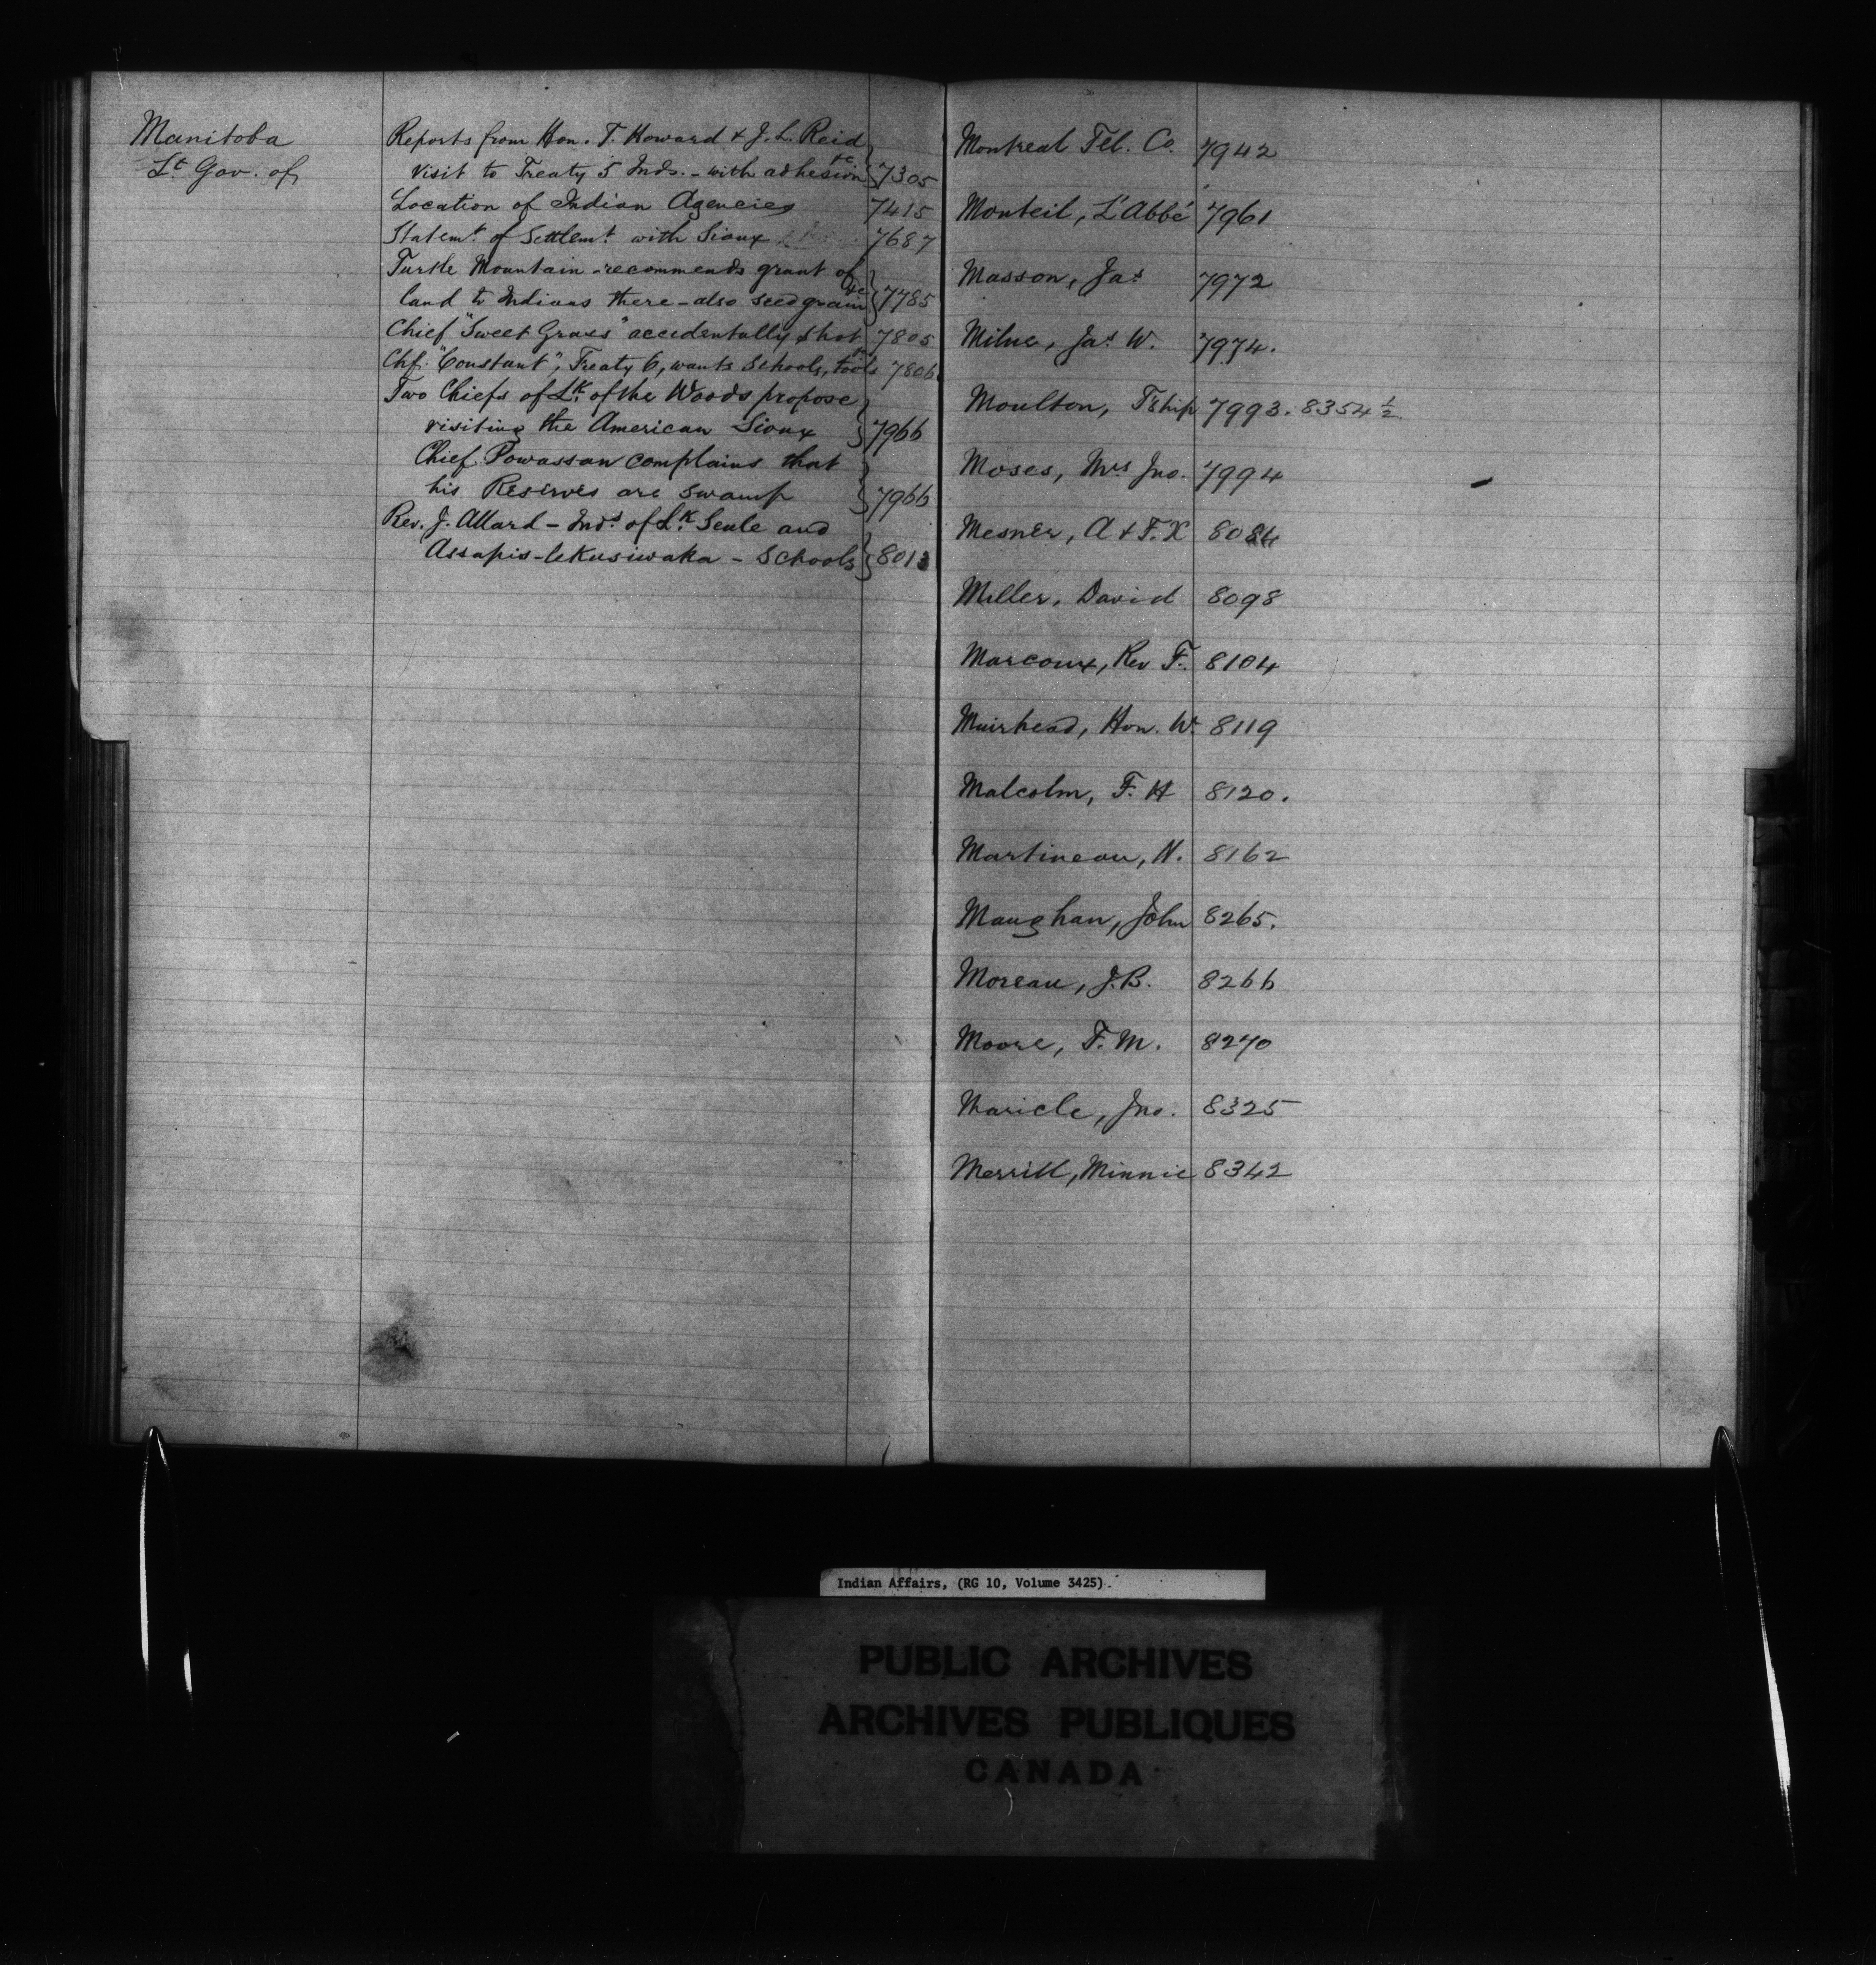 Manitoba
Lt Gov. of
Reports from Hon. T. Howard & J. L. Reid
Visit to Treaty 5 Inds. - with adhesion &c } 7305
Location of Indian Agencies 7415
Statemt. of Settlemt. with Sioux 7687
Turtle Mountain - recommends grant of
land to Indians there - also seed grain &c } 7785
Chief "Sweet Grass" accidentally shot 7805
Chf. "Constant", Treaty 6, wants Schools, tools 7806
Two Chiefs of Lk. of the Woods propose
visiting the American Sioux } 7966
Chief Powassan complains that
his Reserves are swamp } 7966
Rev. J. Allard - Inds of Lk Seule and
Assapis-lekusiwaka - Schools } 8013
Montreal Tel. Co. 7942
Monteil, L'Abbé 7961
Masson, Jas 7972
Milne, Jas. W. 7974.
Moulton, Tship 7993. 8354 1/2
Moses, Mrs Jno. 7994
Mesner, A & F. X 8084
Miller, David 8098
Marcoux, Rev F. 8104
Muirhead, Hon. W. 8119
Malcolm, F. H 8120.
Martineau, N. 8162
Maughan, John 8265.
Moreau, J.B. 8266
Moore, F. M. 8270
Maricle, Jno. 8325
Merrill, Minnie 8342
Indian Affairs, (RG 10, Volume 3425).
PUBLIC ARCHIVES
ARCHIVES PUBLIQUES
CANADA